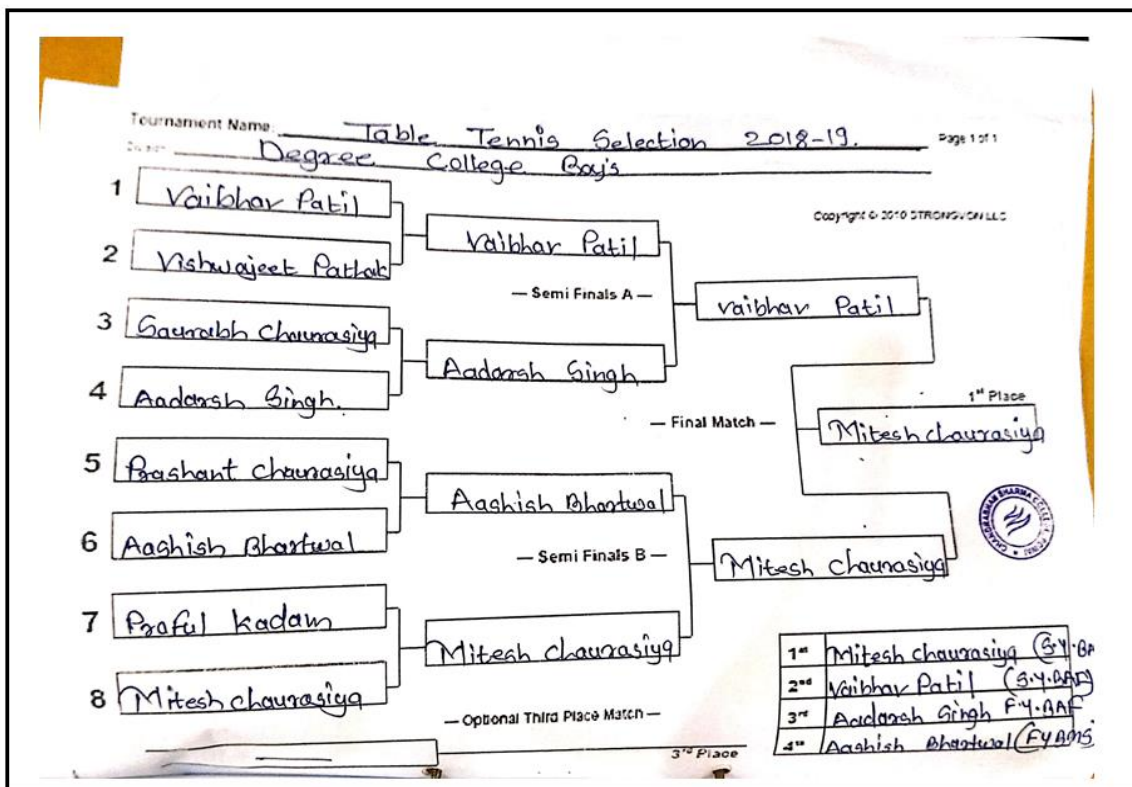 Tournament Name: Table Tennis Selection 2018-19. Page 1 of 1
Degree College Boy's
Copyright © 2010 STRONGVON LLC
1 Vaibhav Patil
2 Vishwajeet Pathak
3 Saurabh Chaurasiya
4 Aadarsh Singh.
5 Prashant Chaurasiya
6 Aashish Bhartwal
7 Praful Kadam
8 Mitesh chaurasiya
Vaibhav Patil
— Semi Finals A —
Aadarsh Singh
Aashish Bhartwal
— Semi Finals B —
Mitesh chaurasiya
— Optional Third Place Match —
3rd Place
Vaibhav Patil
— Final Match —
Mitesh Chaurasiya
1st Place
Mitesh chaurasiya
1st Mitesh chaurasiya (S.Y.BA
2nd Vaibhav Patil (S.Y.BAF)
3rd Aadarsh Singh F.Y.BAF
4th Aashish Bhartwal (FYBMS